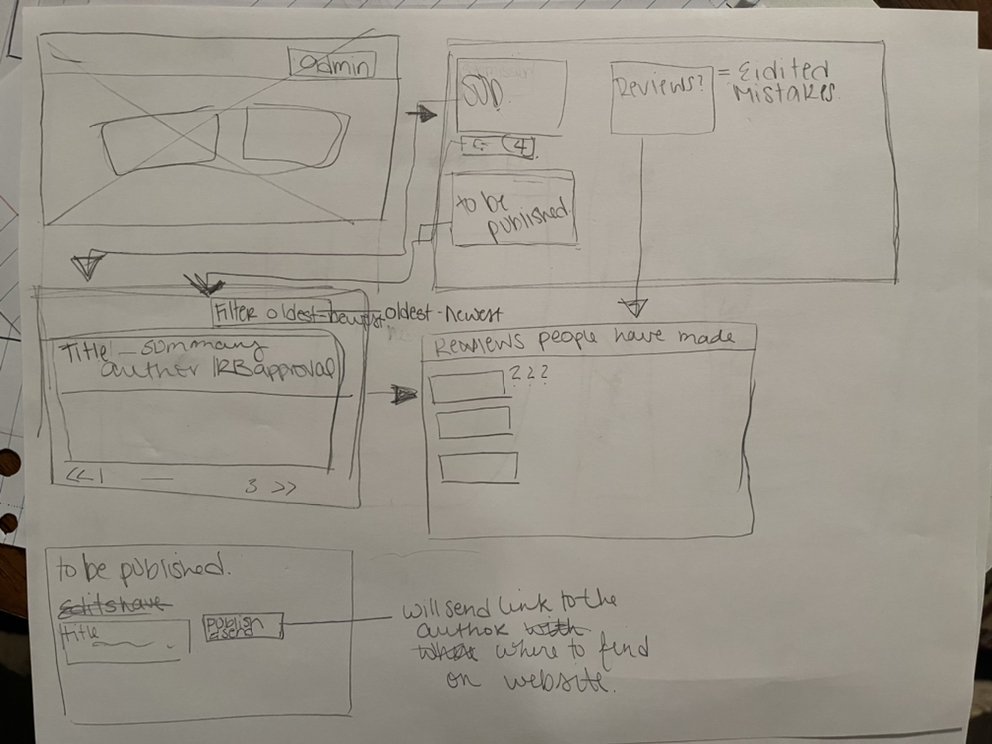 admin
SUD.
(4)
to be
published.
Reviews?
= Eidited
Mistakes.
Filter oldest - oldest - Newest
Title - summary
author IRB approval
<< 1 — 3 >>
Reaviews people have made
? ? ?
to be published.
Title
publish
&send
will send link to the
author
where to find
on website.